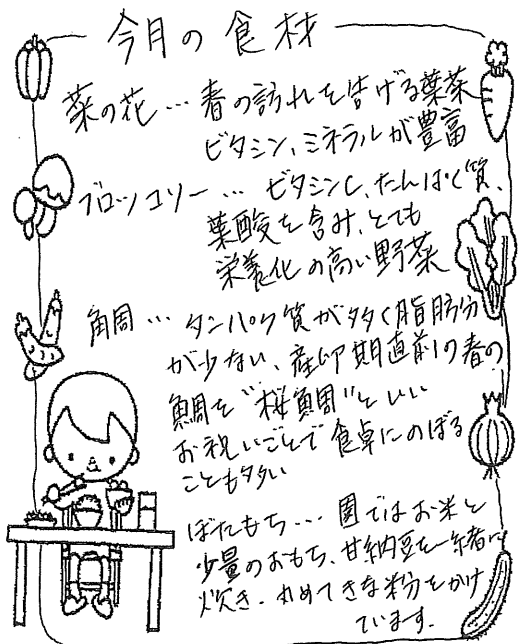 今月の食材
菜の花…春の訪れを告げる葉菜
ビタミン、ミネラルが豊富
ブロッコリー…ビタミンC、たんぱく質、
葉酸を含み、とても
栄養化の高い野菜
鯛…タンパク質が多く脂肪分
が少ない、産卵期直前の春の
鯛を"桜鯛"といい
お祝いごとで食卓にのぼる
ことも多い
ぼたもち…園ではお米と
少量のおもち、甘納豆を一緒に
炊き、丸めてきな粉をかけ
ています.